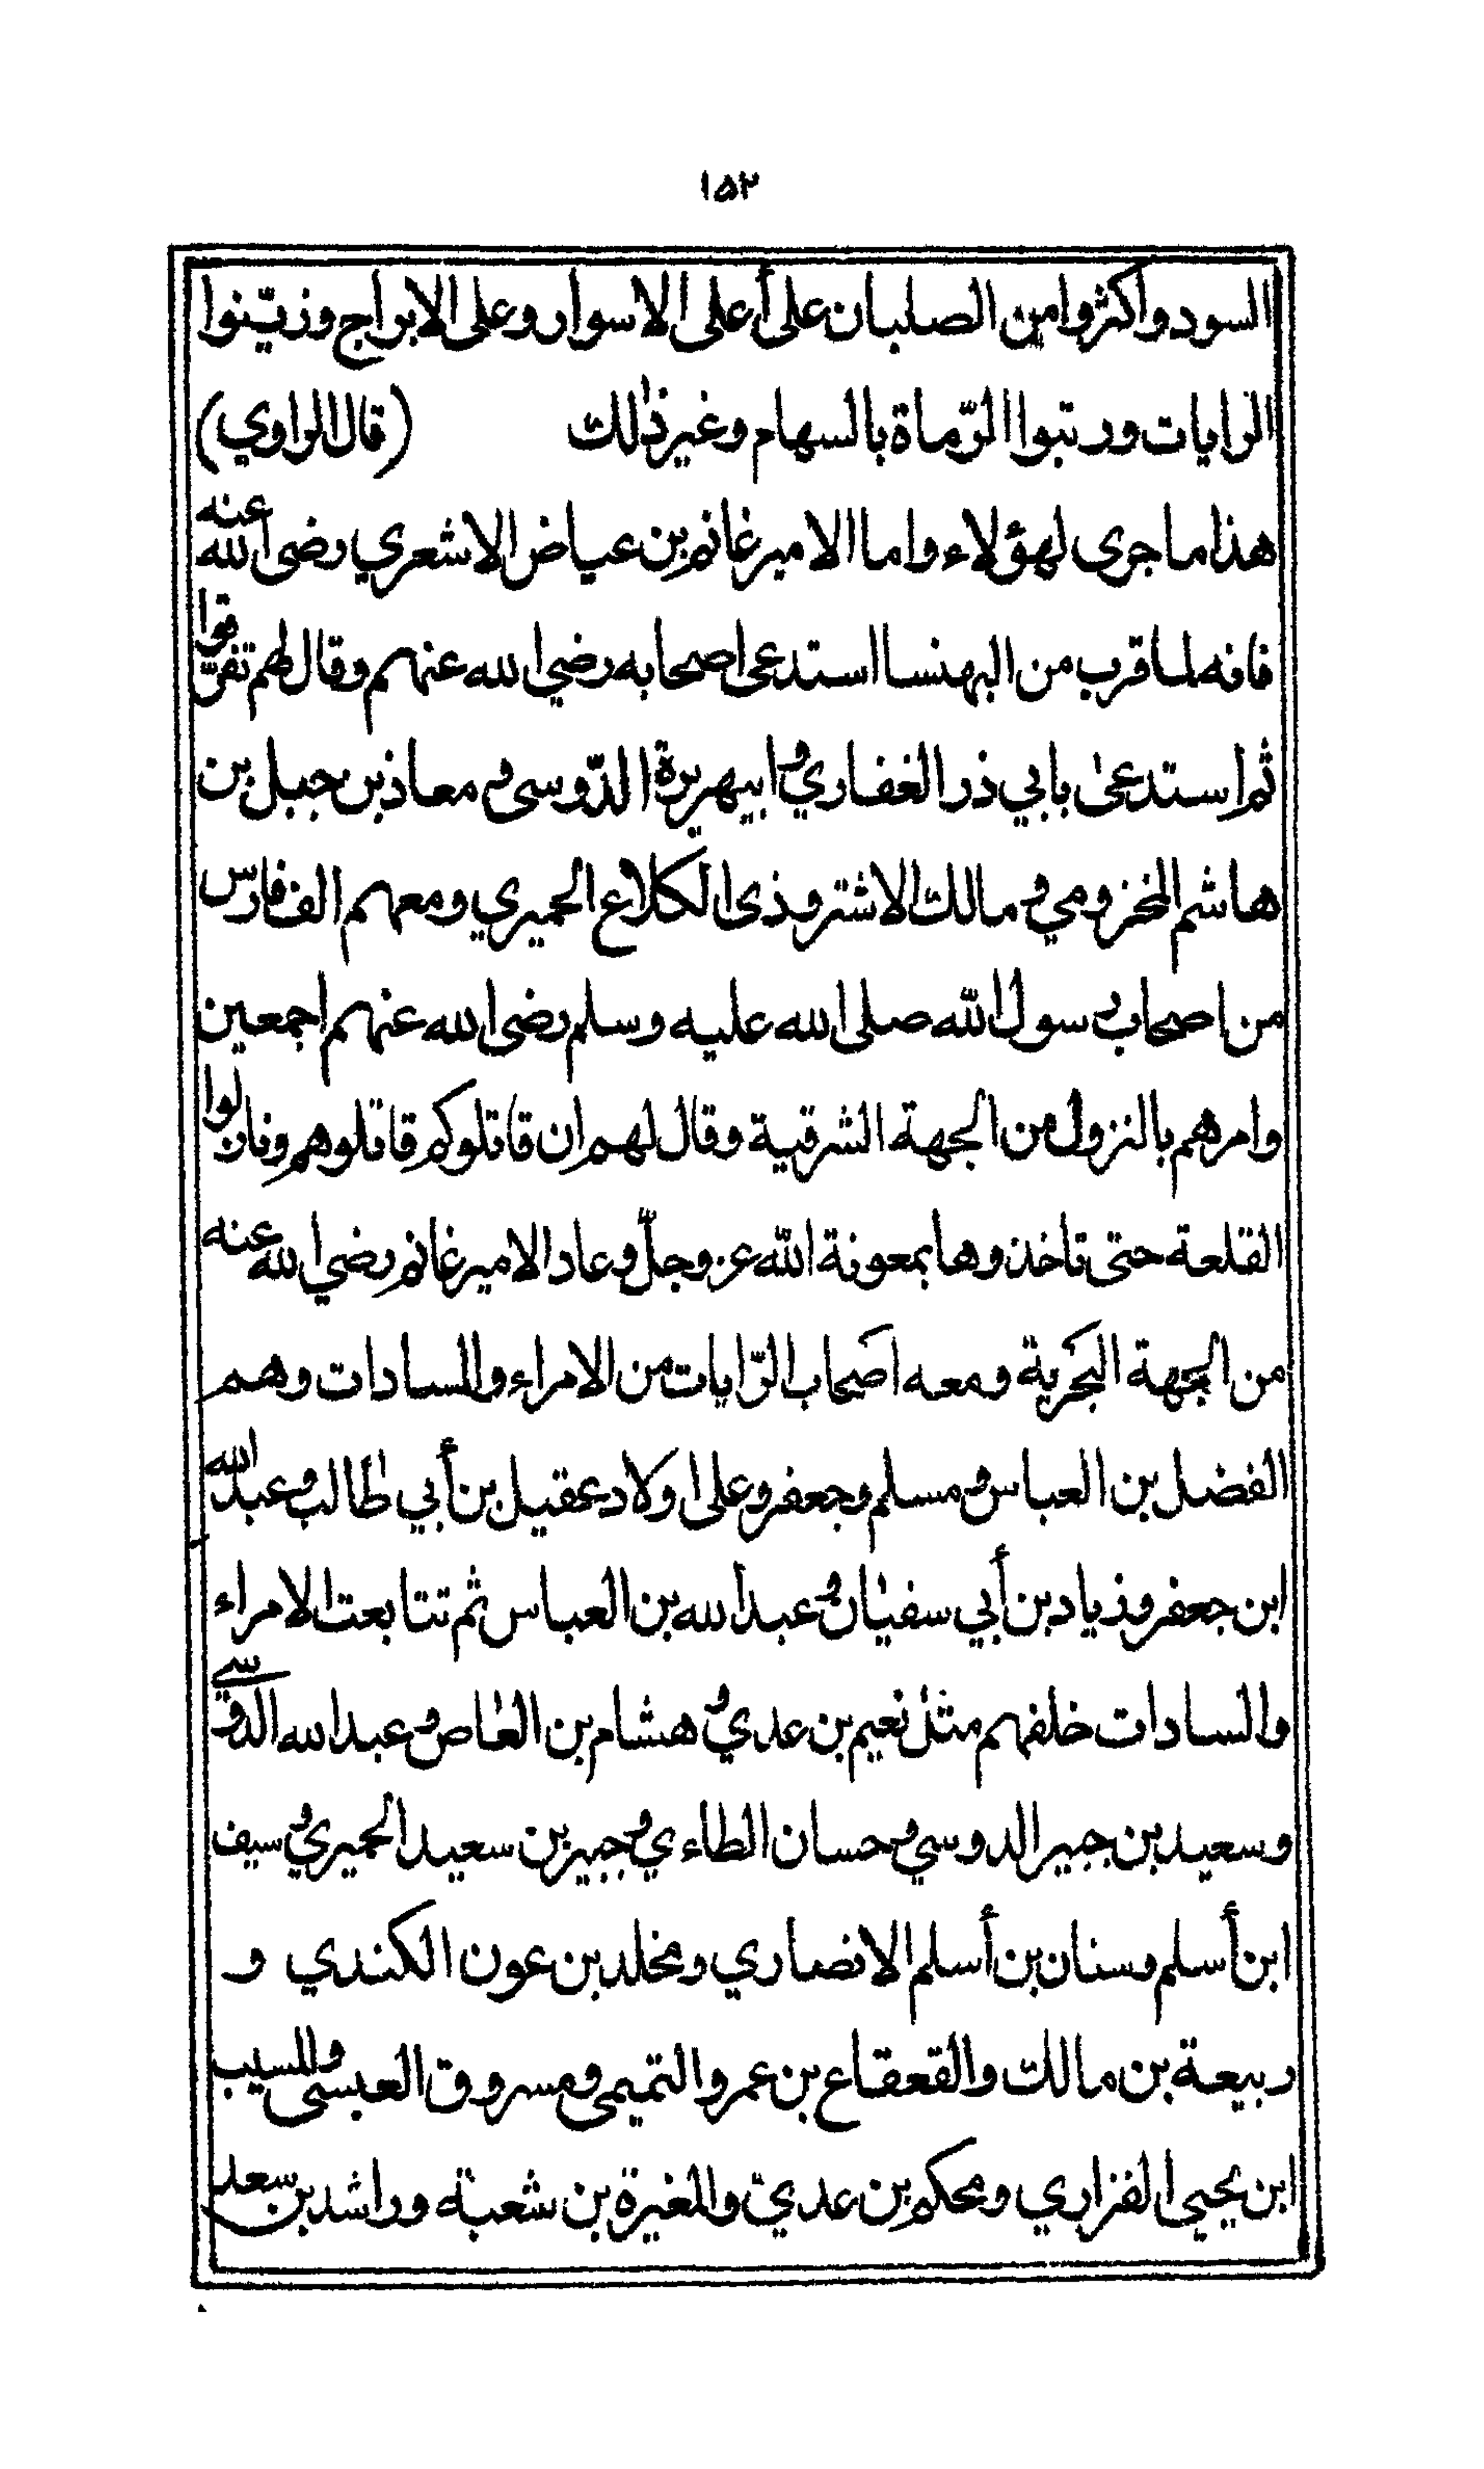 ١٥٢
السود واكثروا من الصلبان على أعلى الاسوار وعلى الابراج وزيّنوا
الرايات ورتبوا الرّماة بالسهام وغير ذلك (قال الراوي)
هذا ما جرى لهؤلاء واما الامير غانم بن عياض الاشعري رضى الله عنه
فانه لما قرب من البهنسا استدعى اصحابه رضي الله عنهم وقال لهم تفرّقوا
ثم استدعى بابي ذر الغفاري وابيهريرة الدّوسى ومعاذ بن جبل بن
هاشم المخزومي ومالك الاشتر وذى الكلاع الحميري ومعهم الف فارس
من اصحاب رسول الله صلى الله عليه وسلم رضى الله عنهم اجمعين
وامرهم بالنزول من الجهة الشرقية وقال لهم ان قاتلوكم قاتلوهم ونازلوا
القلعة حتى تاخذوها بمعونة الله عز وجلّ وعاد الامير غانم رضي الله عنه
من الجهة البحرية ومعه اصحاب الرّايات من الامراء والسادات وهم
الفضل بن العباس ومسلم وجعفر وعلى اولاد عقيل بن أبي طالب وعبد الله
ابن جعفر وزياد بن أبي سفيان وعبد الله بن العباس ثم تتابعت الامراء
والسادات خلفهم مثل نعيم بن عدي وهشام بن العاص وعبد الله الدوسي
وسعيد بن جبير الدوسي وحسان الطاءي وجبير بن سعيد الحميري وسيف
ابن أسلم وسنان بن أسلم الانصاري ومخلد بن عون الكندي و
ربيعة بن مالك والقعقاع بن عمرو التميمى ومسروق العبسى والمسيب
ابن يحيى الفزاري ومحكم بن عدي والمغيرة بن شعبة وراشد بن سعد